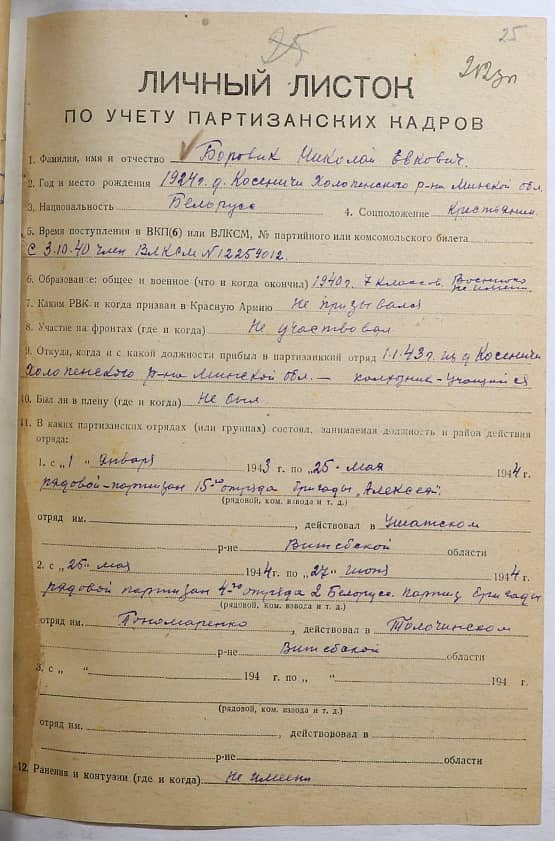 25
25
ЛИЧНЫЙ ЛИСТОК
ПО УЧЕТУ ПАРТИЗАНСКИХ КАДРОВ
1. Фамилия, имя и отчество Боровик Николай Евкович.
2. Год и место рождения 1924 г. д. Косеничи Холопенского р-на Минской обл.
3. Национальность Белорусс 4. Соцположение Крестьянин
5. Время поступления в ВКП(б) или ВЛКСМ, № партийного или комсомольского билета
С 3.10.40 член ВЛКСМ N 12259012.
6. Образование: общее и военное (что и когда окончил) 1940 г. 7 классов. Военного не имеет
7. Каким РВК и когда призван в Красную Армию Не призывался
8. Участие на фронтах (где и когда) Не участвовал
9. Откуда, когда и с какой должности прибыл в партизанский отряд 1.1.43 г. из д Косеничи
Холопенского р-на Минской обл. — колхозник-учащийся
10. Был ли в плену (где и когда) Не был.
11. В каких партизанских отрядах (или группах) состоял, занимаемая должность и район действия
отряда:
1. с „1" января 1943 г. по „25" мая 1944 г.
рядовой-партизан 15-го отряда бригады „Алексея".
(рядовой, ком. взвода и т. д.)
отряд им. , действовал в Ушатском
р-не Витебской области
2. с „25" мая 1944 г. по „27" июня 1944 г.
рядовой партизан 4-го отряда 2 Белорусс. партиз бригады
(рядовой, ком. взвода и т. д.)
отряд им. Пономаренко , действовал в Толочинском
р-не Витебской области
3. с „ " 194 г. по „ " 194 г.
(рядовой, ком. взвода и т. д.)
отряд им. , действововал в
р-не области
12. Ранения и контузии (где и когда) Не имеет